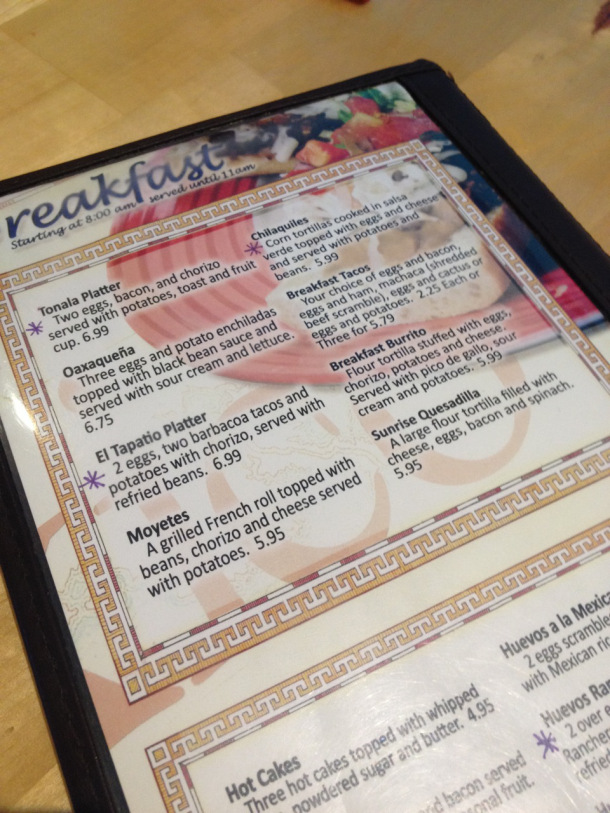 reakfast
Starting at 8:00 am served until 11am
Tonala Platter
Two eggs, bacon, and chorizo
served with potatoes, toast and fruit
cup. 6.99
Oaxaqueña
Three eggs and potato enchiladas
topped with black bean sauce and
served with sour cream and lettuce.
6.75
El Tapatio Platter
2 eggs, two barbacoa tacos and
potatoes with chorizo, served with
refried beans. 6.99
Moyetes
A grilled French roll topped with
beans, chorizo and cheese served
with potatoes. 5.95
Chilaquiles
Corn tortillas cooked in salsa
verde topped with eggs and cheese
and served with potatoes and
beans. 5.99
Breakfast Tacos
Your choice of eggs and bacon,
eggs and ham, machaca (shredded
beef scramble), eggs and cactus or
eggs and potatoes. 2.25 Each or
Three for 5.79
Breakfast Burrito
Flour tortilla stuffed with eggs,
chorizo, potatoes and cheese.
Served with pico de gallo, sour
cream and potatoes. 5.99
Sunrise Quesadilla
A large flour tortilla filled with
cheese, eggs, bacon and spinach.
5.95
Hot Cakes
Three hot cakes topped with whipped
powdered sugar and butter. 4.95
and bacon served
onal fruit.
Huevos a la Mexica
2 eggs scramble
with Mexican ri
Huevos Ra
2 over
Ranche
refrie